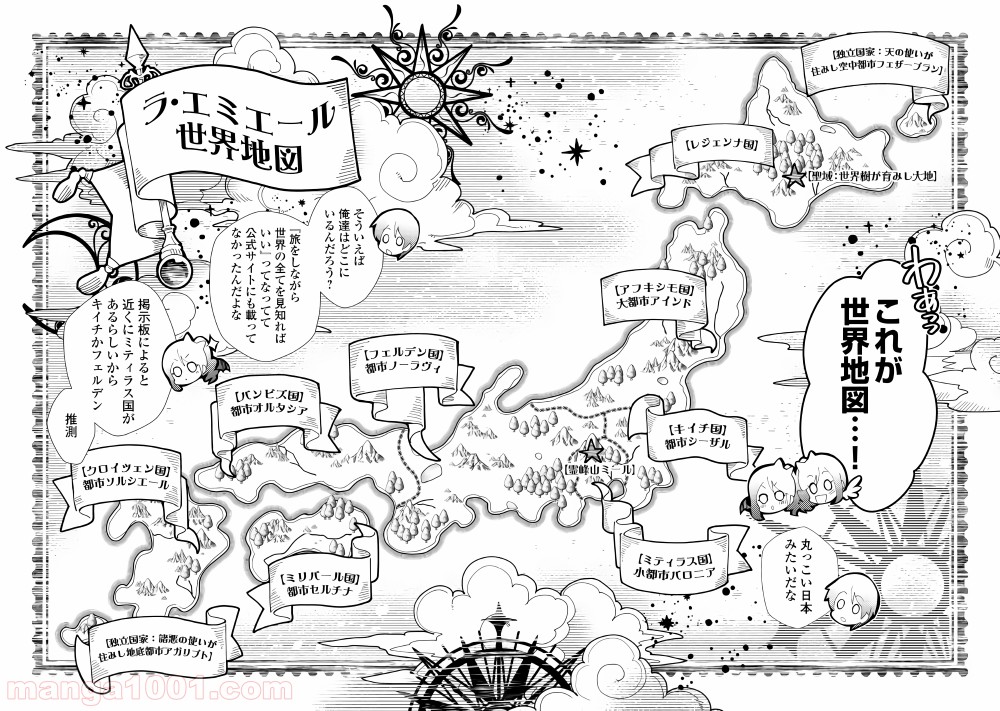 わぁっ
これが
世界地図…！
[独立国家：天の使いが
住みし空中都市フェザーブラン]
[レジェンナ国]
[聖域：世界樹が育みし大地]
[アフキシモ国]
大都市アインド
[キイチ国]
都市シーザル
[霊峰山ミール]
[ミティラス国]
小都市バロニア
丸っこい日本
みたいだな
ラ・エミエール
世界地図
そういえば
俺達はどこに
いるんだろう？
『旅をしながら
世界の全てを見知れば
いい』ってなってて
公式サイトにも載って
なかったんだよな
掲示板によると
近くにミティラス国が
あるらしいから
キイチかフェルデン
推測
[フェルデン国]
都市ノーラヴィ
[バンビズ国]
都市オルタシア
[クロイツェン国]
都市ソルシエール
[ミリバール国]
都市セルチナ
[独立国家：諸悪の使いが
住みし地底都市アガリプト]
manga1001.com